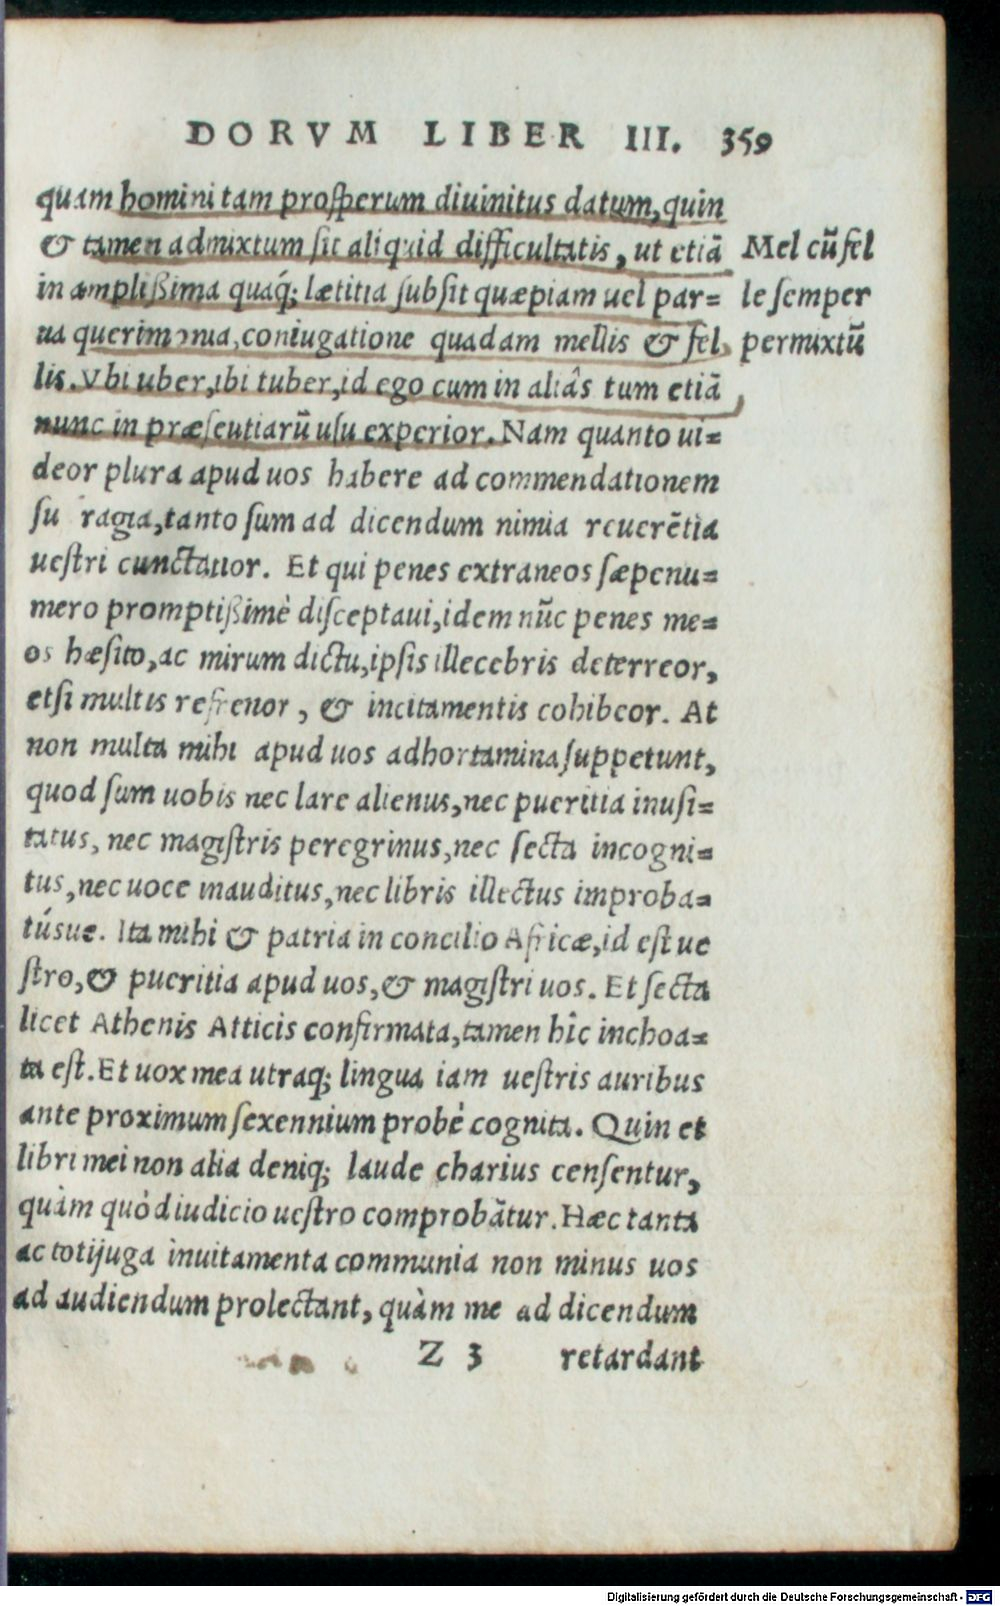 DORVM LIBER III. 359
quam homini tam prosperum diuinitus datum, quin
& tamen admixtum sit aliquid difficultatis, ut etiā
in amplißima quaq́; lætitia subsit quæpiam uel par=
ua querimonia, coniugatione quadam mellis & fel
lis. Vbi uber, ibi tuber, id ego cum in aliâs tum etiā
nunc in præsentiarũ usu experior. Nam quanto ui=
deor plura apud uos habere ad commendationem
su ragia, tanto sum ad dicendum nimia reuerētia
uestri cunctatior. Et qui penes extraneos sæpenu=
mero promptißimè disceptaui, idem nũc penes me=
os hæsito, ac mirum dictu, ipsis illecebris deterreor,
etsi multis refrenor, & incitamentis cohibeor. At
non multa mihi apud uos adhortamina suppetunt,
quod sum uobis nec lare alienus, nec pueritia inusi=
tatus, nec magistris peregrinus, nec secta incogni=
tus, nec uoce inauditus, nec libris illectus improba=
túsue. Ita mihi & patria in concilio Africæ, id est ue
stro, & pueritia apud uos, & magistri uos. Et secta
licet Athenis Atticis confirmata, tamen hîc inchoa=
ta est. Et uox mea utraq; lingua iam uestris auribus
ante proximum sexennium probè cognita. Quin et
libri mei non alia deniq; laude charius censentur,
quàm quòd iudicio uestro comprobātur. Hæc tanta
ac totijuga inuitamenta communia non minus uos
ad audiendum prolectant, quàm me ad dicendum
Z 3 retardant
Mel cũ fel
le semper
permixtũ
Digitalisierung gefördert durch die Deutsche Forschungsgemeinschaft - DFG